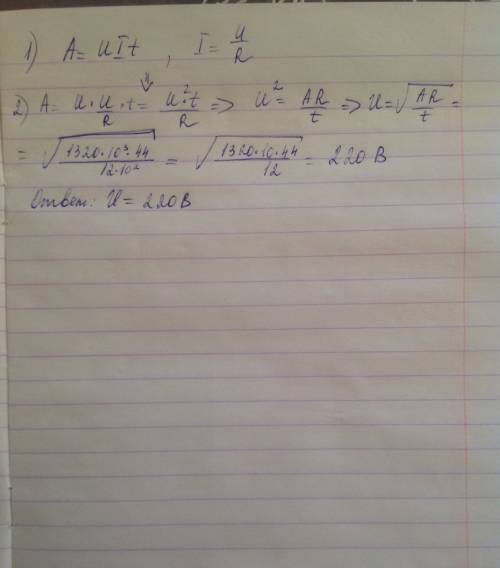 1) A = UIt , I = U/R
2) A = U·U/R·t = U²·t/R => U² = AR/t => U = √(AR/t) =
= √(1320·10³·44/12·10²) = √(1320·10·44/12) = 220 В
Ответ: U = 220 В